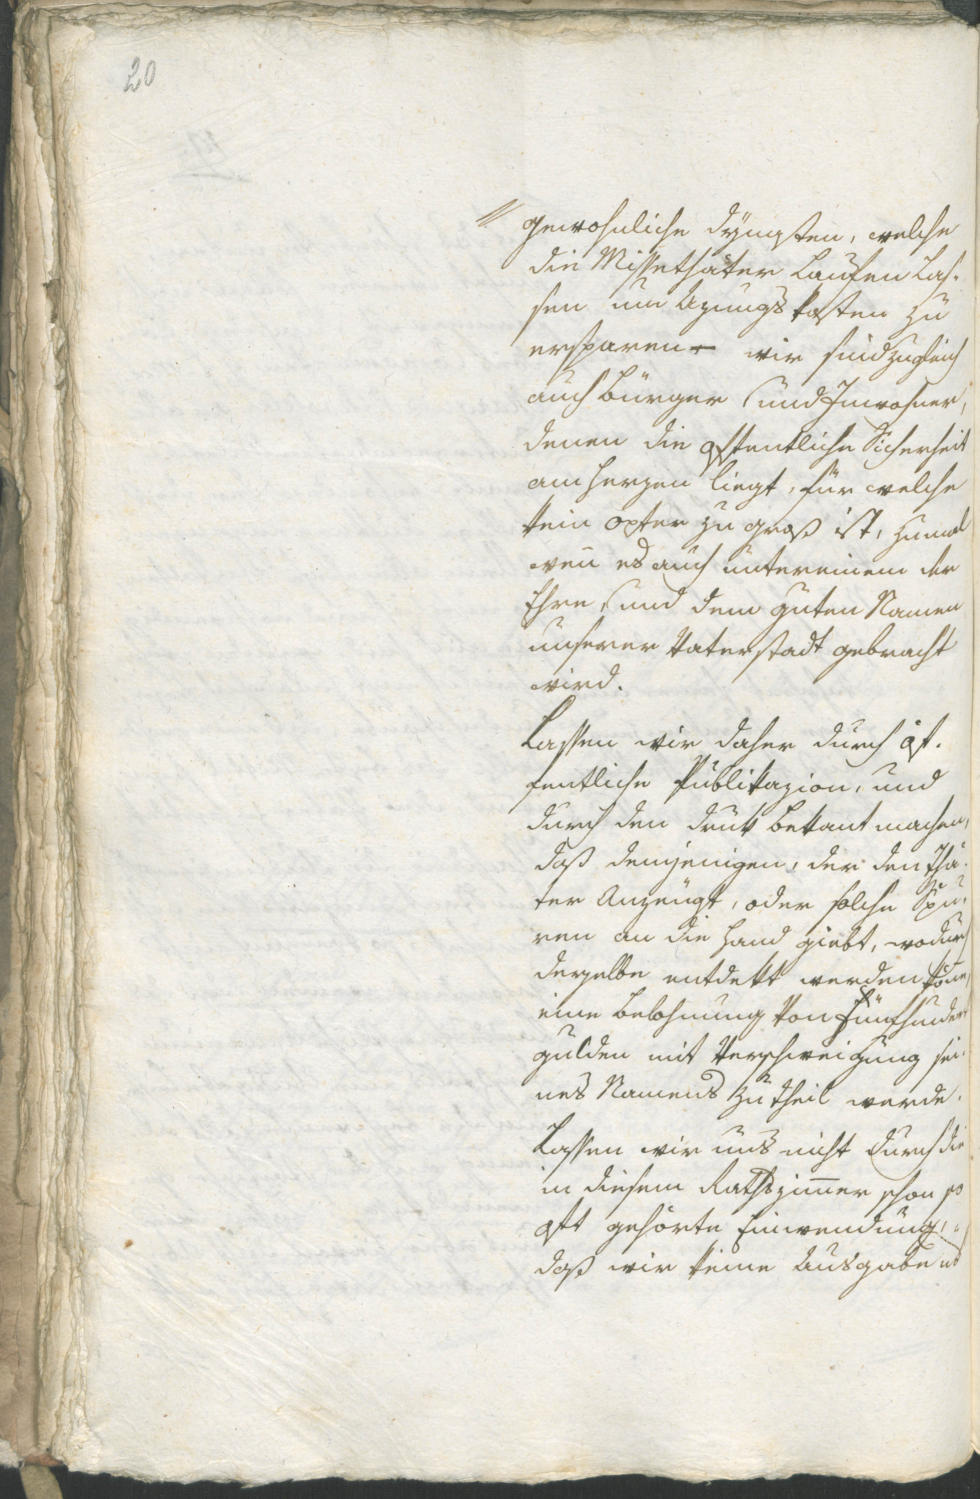 20
// gewohnliche dynasten, welche
die Missethäter Laufen Las-
sen um Azungskosten zu
ersparen – wir sind zugleich
auch Bürger und Inwohner,
denen die offentliche Sicherheit
am Herzen liegt, für welche
kein opfer zu groß ist, zumal
wen̄ es auch untereinem der
Ehre, und dem guten Namen
unserer Vaterstadt gebracht
wird.
Lassen wir daher durch öf-
fentliche Publikazion, und
durch den druk bekant machen,
daß demjenigen, der den Thä-
ter Anzeugt, oder solche Spu-
ren an die Hand giebt, wodurch
derselbe entdekt werden kön̄e,
eine Belohnung von Fünfhundert
gulden mit Verschweigung sei-
nes Namens zu theil werde.
Lassen wir uns nicht durch die
in diesem Rathszim̄er schon so
oft gehörte Einwendung,
daß wir keine Ausgabe